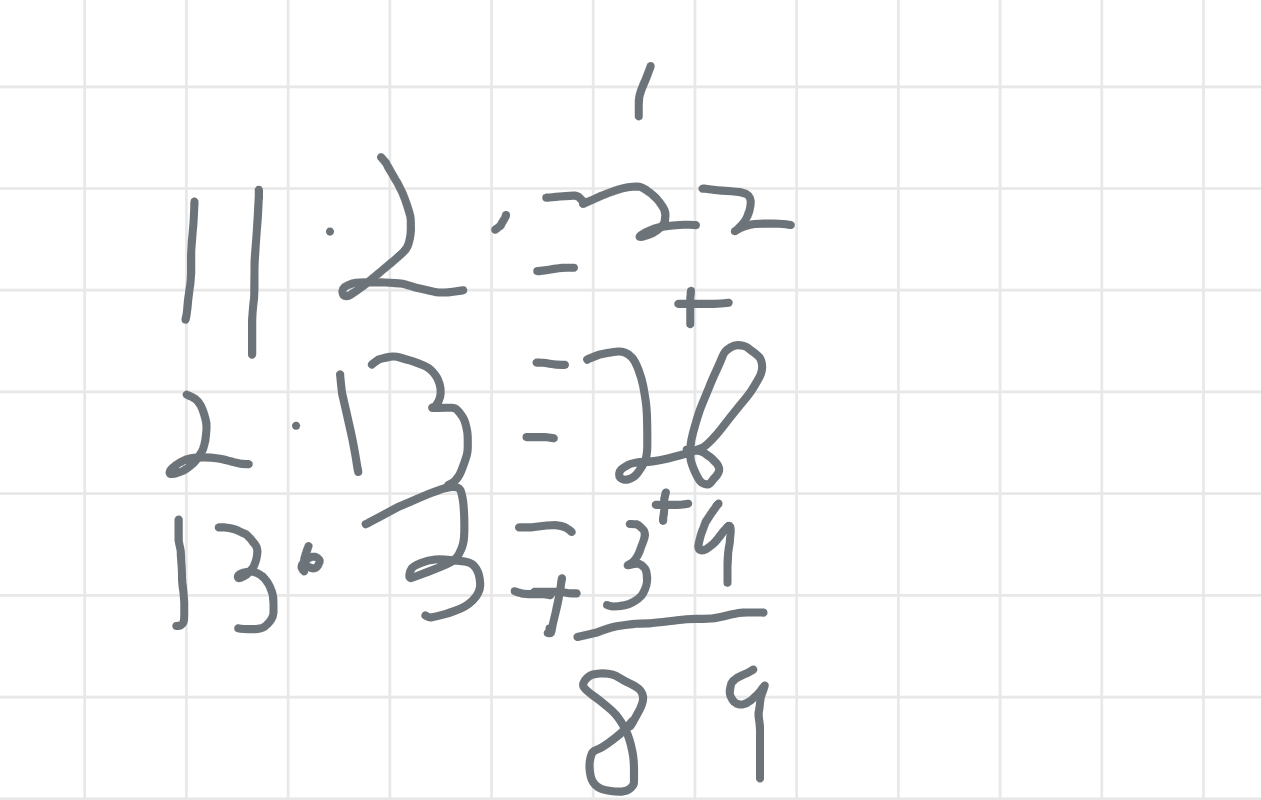 1
11 · 2 = 22
+
2 · 13 = 28
+
13 · 3 = 39
+
89